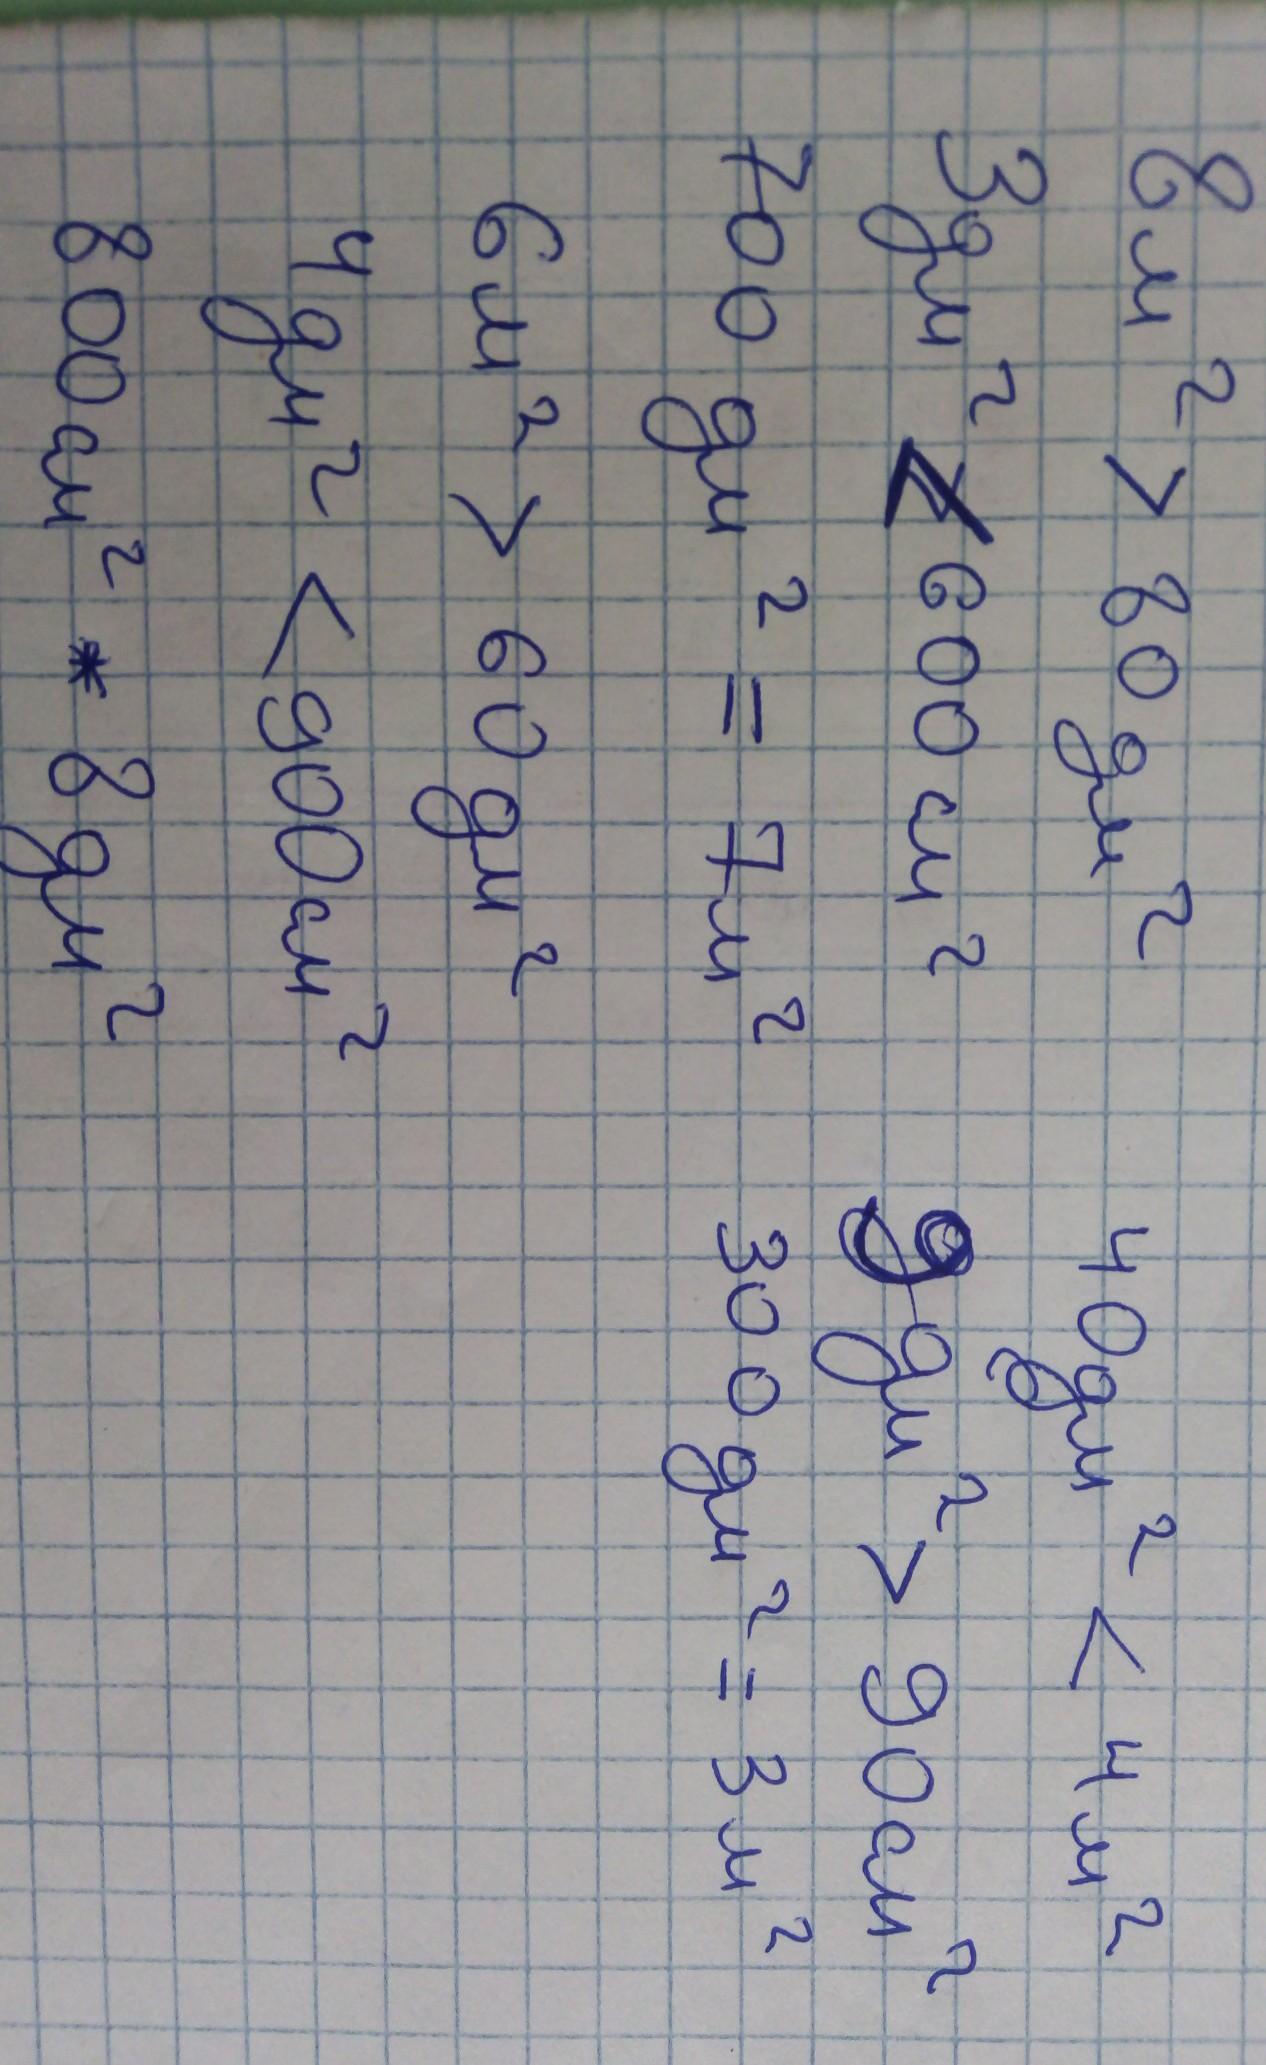 8м² > 80дм²
3дм² < 600см²
700 дм² = 7м²
6м² > 60дм²
4дм² < 900см²
800см² * 8дм²
40дм² < 4м²
9дм² > 90см²
300дм² = 3м²